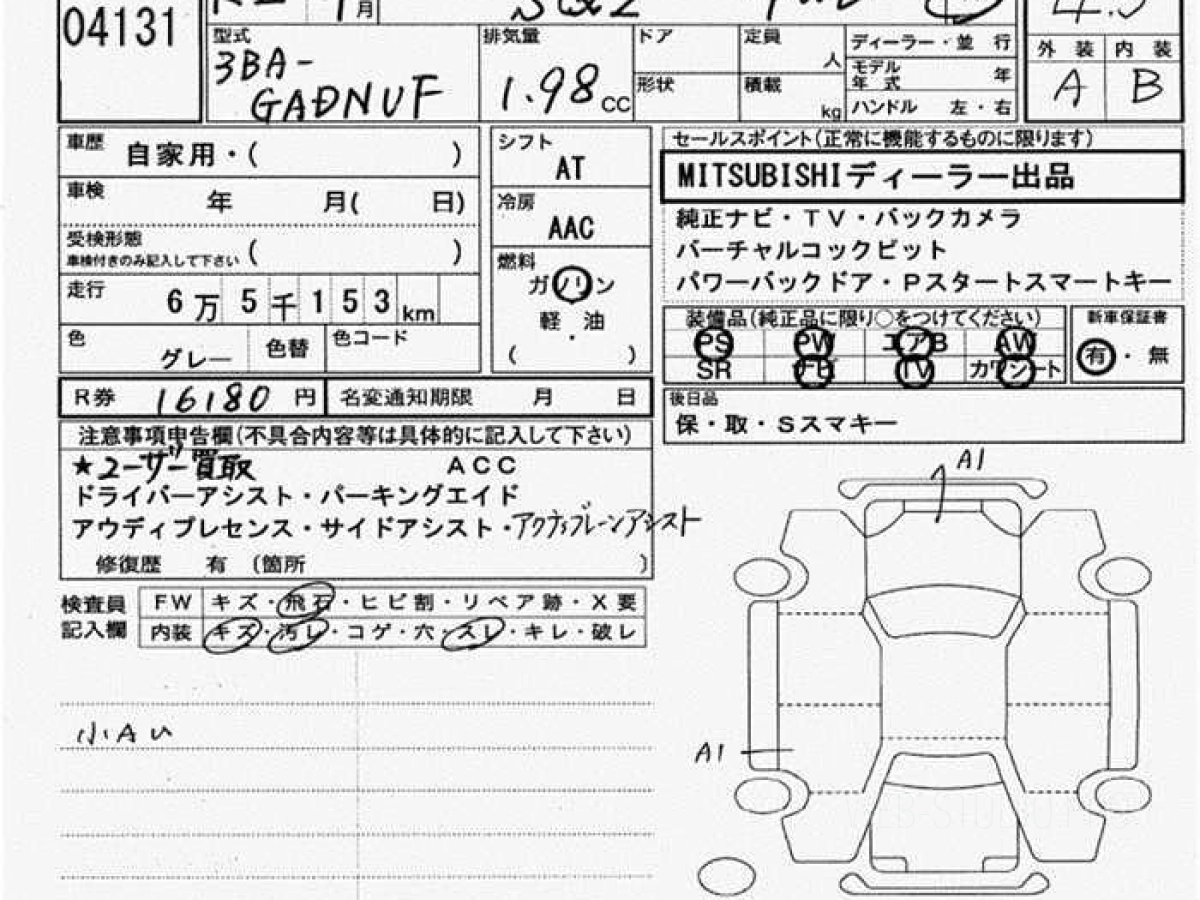 04131
月
SQ2
4.5
型式
3BA-
GADNUF
排気量
1.98 CC
ドア
形状
定員 人
積載 kg
ディーラー・並 行
モデル
年 式 年
ハンドル 左・右
外 装 内 装
A B
車歴 自家用・( )
車検 年 月( 日)
受検形態
車検付きのみ記入して下さい ( )
走行 6万5千153km
色 グレー 色替 色コード
シフト
AT
冷房
AAC
燃料
ガソリン
軽 油
・
( )
セールスポイント(正常に機能するものに限ります)
MITSUBISHIディーラー出品
純正ナビ・TV・バックカメラ
バーチャルコックピット
パワーバックドア・Pスタートスマートキー
装備品(純正品に限り○をつけてください)
PS PW エアB AW
SR ナビ TV カワシート
新車保証書
有・無
R券 16180円 名変通知期限 月 日
後日品
保・取・Sスマキー
注意事項申告欄(不具合内容等は具体的に記入して下さい)
★ユーザー買取 ACC
ドライバーアシスト・パーキングエイド
アウディプレセンス・サイドアシスト・アクティブレーンアシスト
修復歴 有 (箇所 )
検査員
記入欄
FW キズ・飛石・ヒビ割・リペア跡・X要
内装 キズ・汚レ・コゲ・穴・スレ・キレ・破レ
小AU
A1
A1